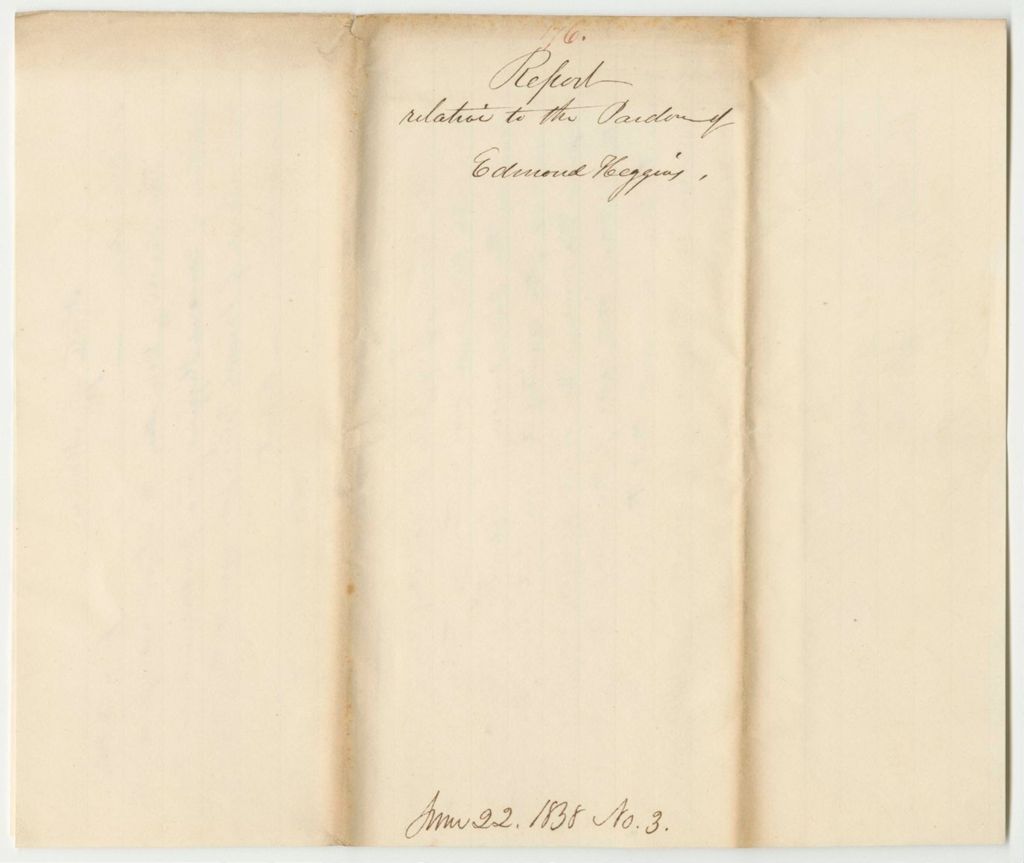 76.
Report
relative to the Pardon of
Edmond Heggins,
June 22. 1838 No. 3.